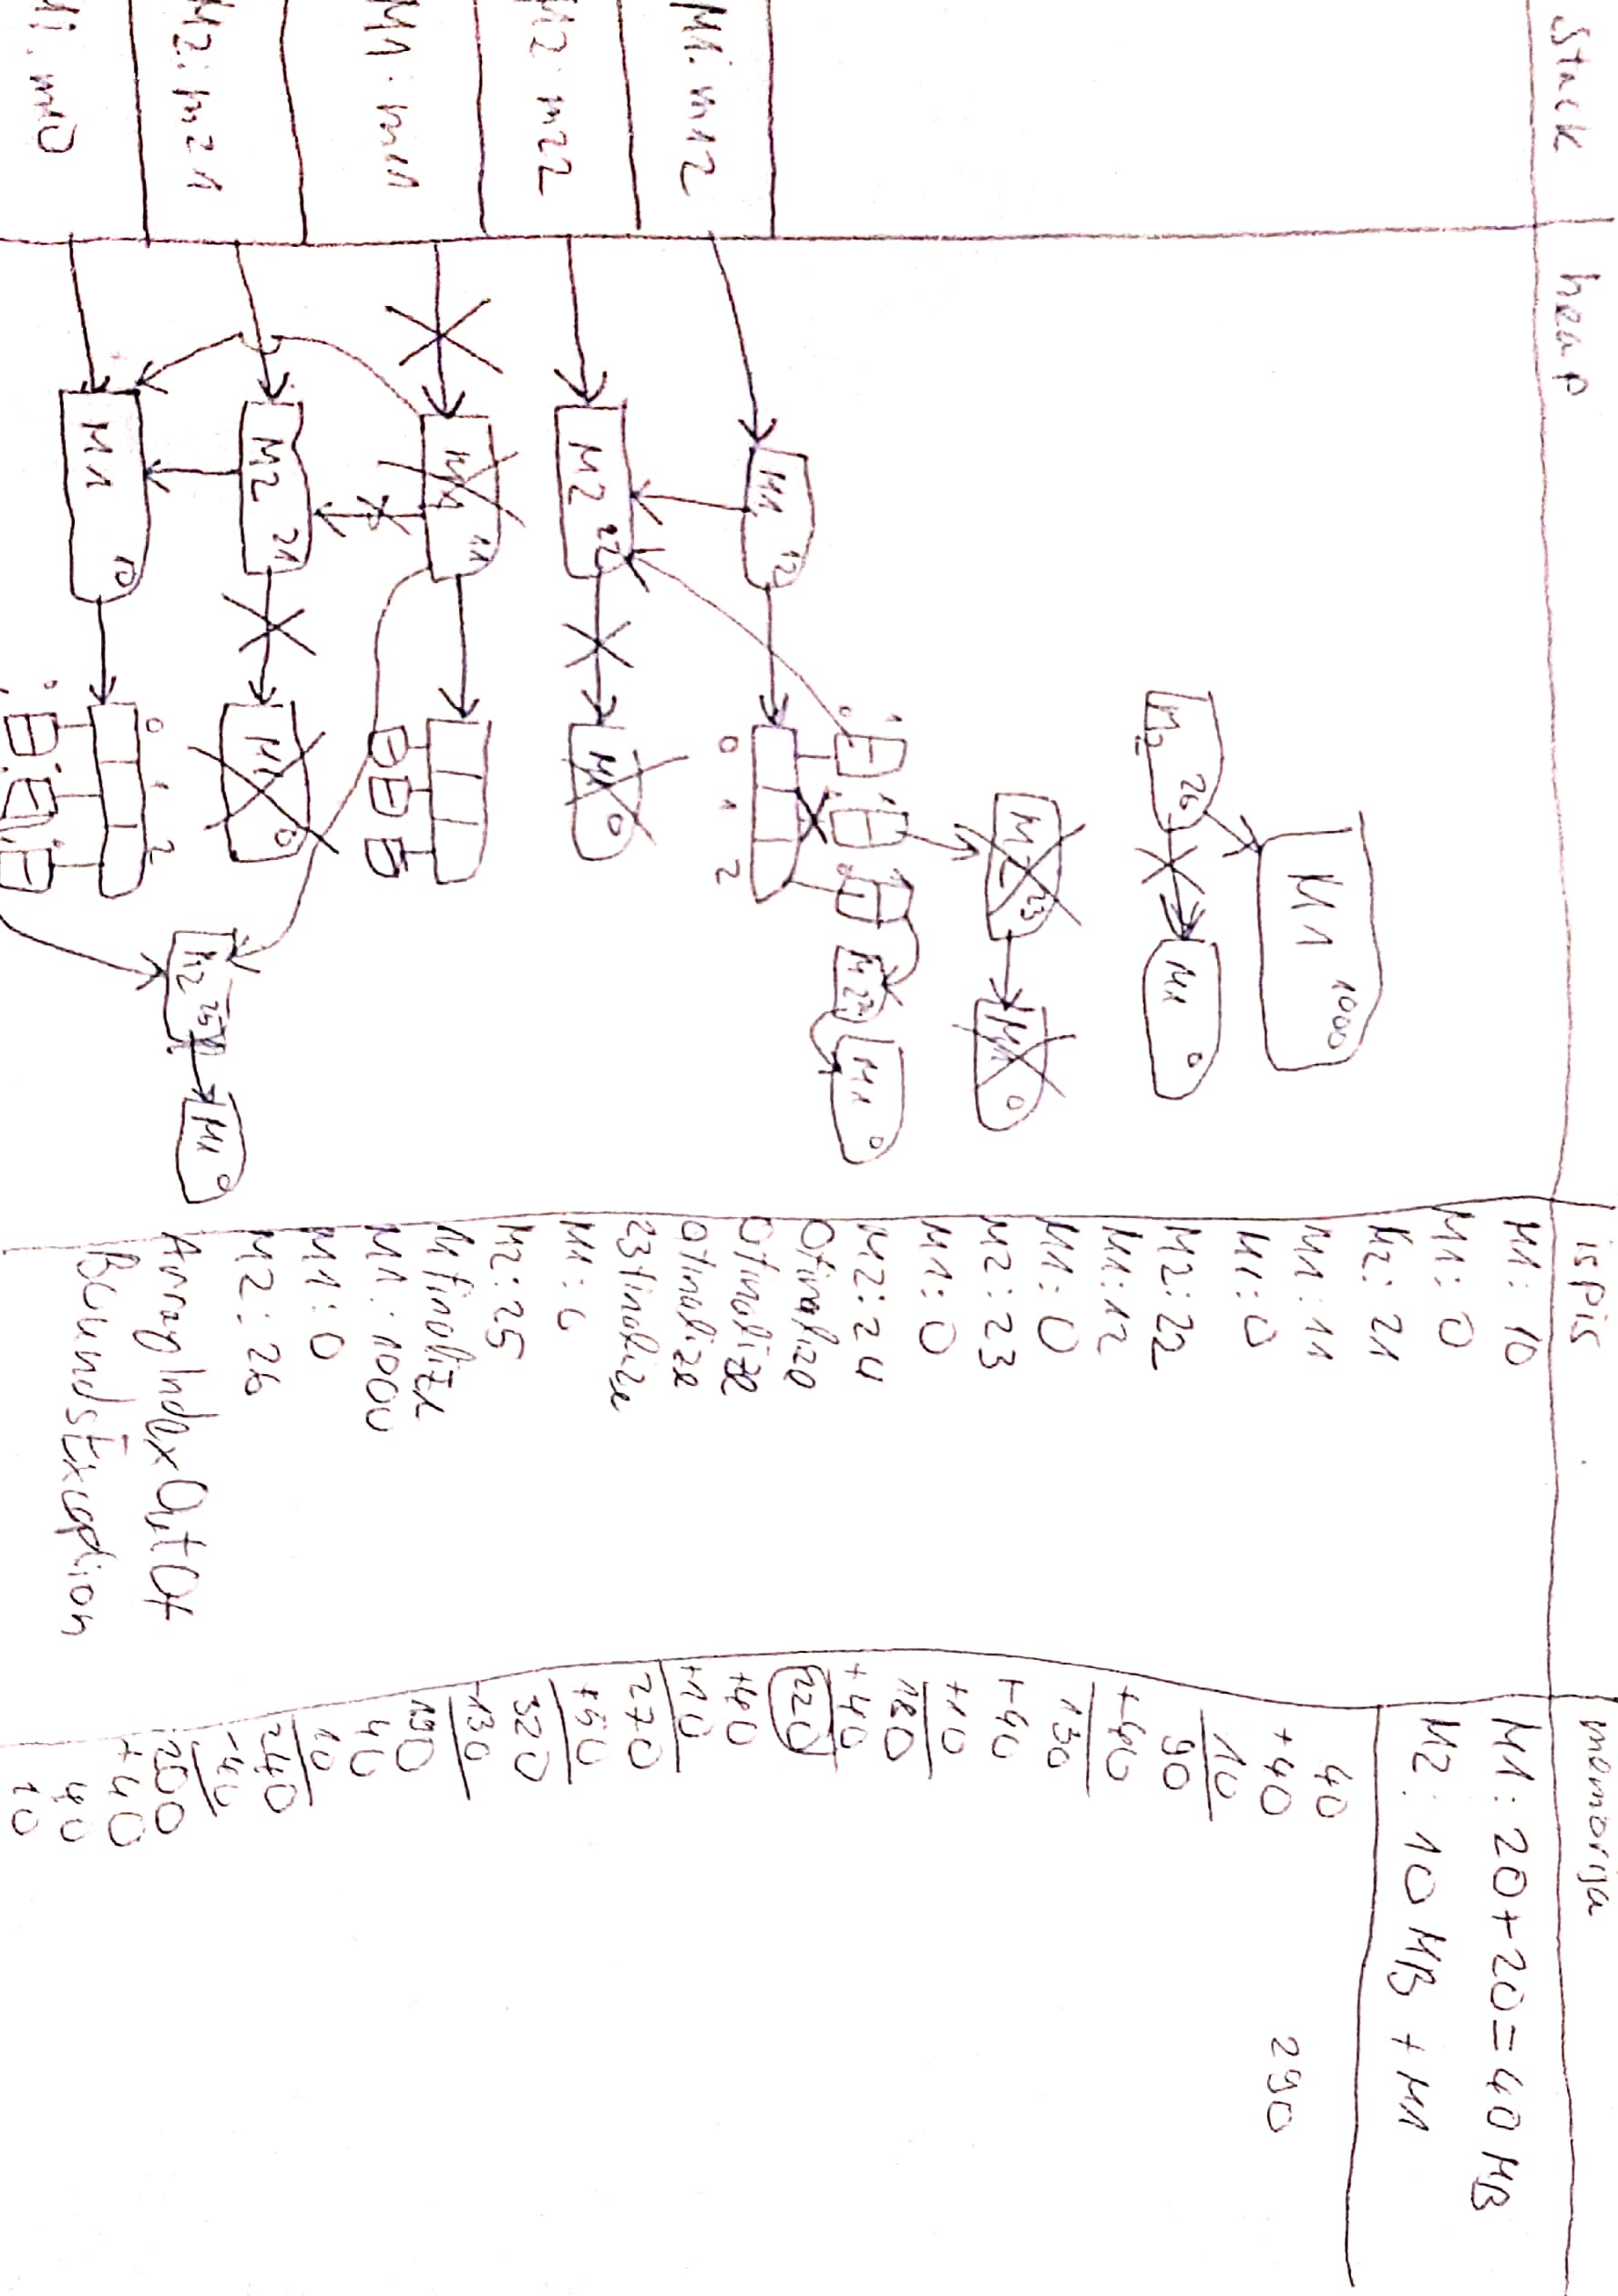 Stack
heap
ispis
memorija
M1: m12
M2: m22
M1: m11
M2: m21
M1: m10
M1 1000
M2 26
M1 0
M2 23
M1 0
M2 24
M1 0
M1 12
0 1 2
M2 22
M1 0
M1 11
M2 21
M1 0
M1 10
0 1 2
M2 25
M1 0
M1: 10
M1: 0
M2: 21
M1: 11
M1: 0
M2: 22
M1: 12
M1: 0
M2: 23
M1: 0
M2: 24
0 finalize
0 finalize
0 finalize
23 finalize
M1: 0
M2: 25
11 finalize
M1: 1000
M1: 0
M2: 26
ArrayIndexOutOf
BoundsException
M1: 20+20=40MB
M2: 10MB + M1
40
+40
10
90
+40
130
+40
+10
180
+40
220
+40
+10
270
+50
320
-130
190
40
10
240
-40
200
+40
40
10
290